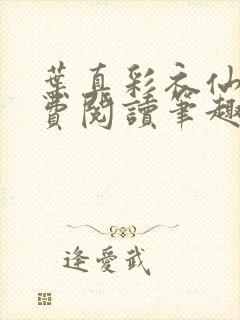 葉真彩衣仙
費閱讀筆趣
逢愛武